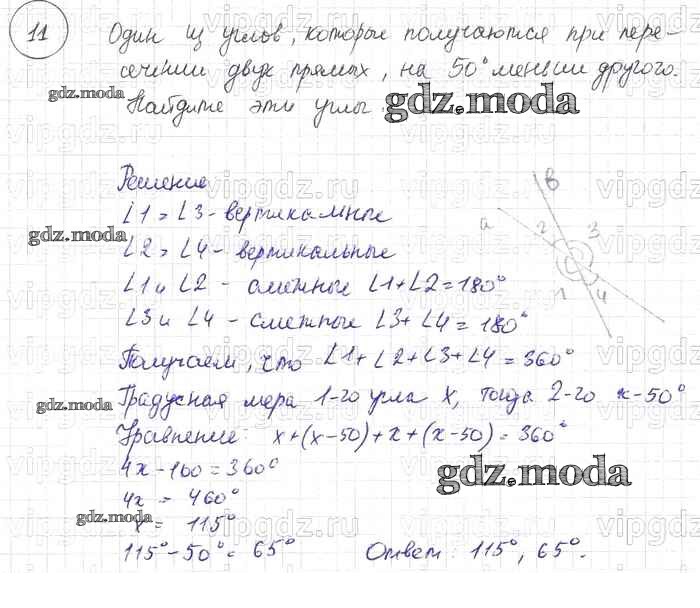 11 Один из углов, которые получаются при пере-
сечении двух прямых, на 50° меньше другого.
gdz.moda
Найдите эти углы.
gdz.moda
Решение
∠1 = ∠3 - вертикальные
gdz.moda
∠2 = ∠4 - вертикальные
∠1 и ∠2 - смежные ∠1+∠2=180°
∠3 и ∠4 - смежные ∠3+∠4=180°
в
а
2 3
1 4
Получаем, что ∠1+∠2+∠3+∠4=360°
Градусная мера 1-го угла x, тогда 2-го x-50°
gdz.moda
Уравнение: x+(x-50)+x+(x-50)=360°
4x-100=360°
gdz.moda
4x = 460°
gdz.moda
x = 115°
115°-50°= 65° Ответ: 115°, 65°.
vipgdz.ru